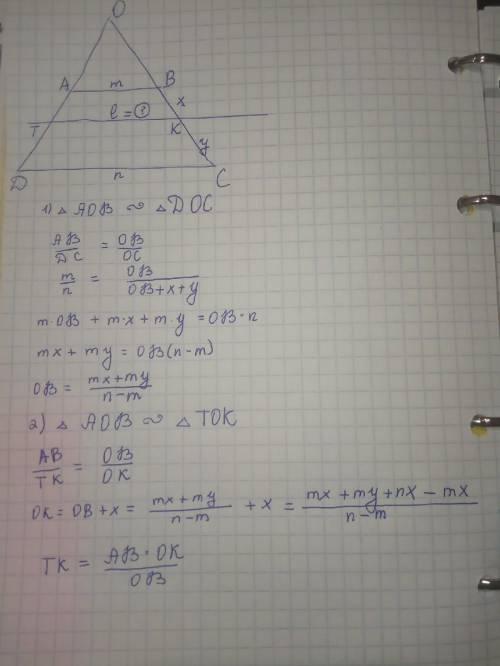 O
A m B
x
T l = ? K
y
D n C
1) △ AOB ∾ △ DOC
AB/DC = OB/OC
m/n = OB/(OB+x+y)
m·OB + m·x + m·y = OB·n
mx + my = OB(n-m)
OB = (mx+my)/(n-m)
2) △ AOB ∾ △ TOK
AB/TK = OB/OK
OK = OB + x = (mx+my)/(n-m) + x = (mx+my+nx-mx)/(n-m)
TK = (AB·OK)/OB